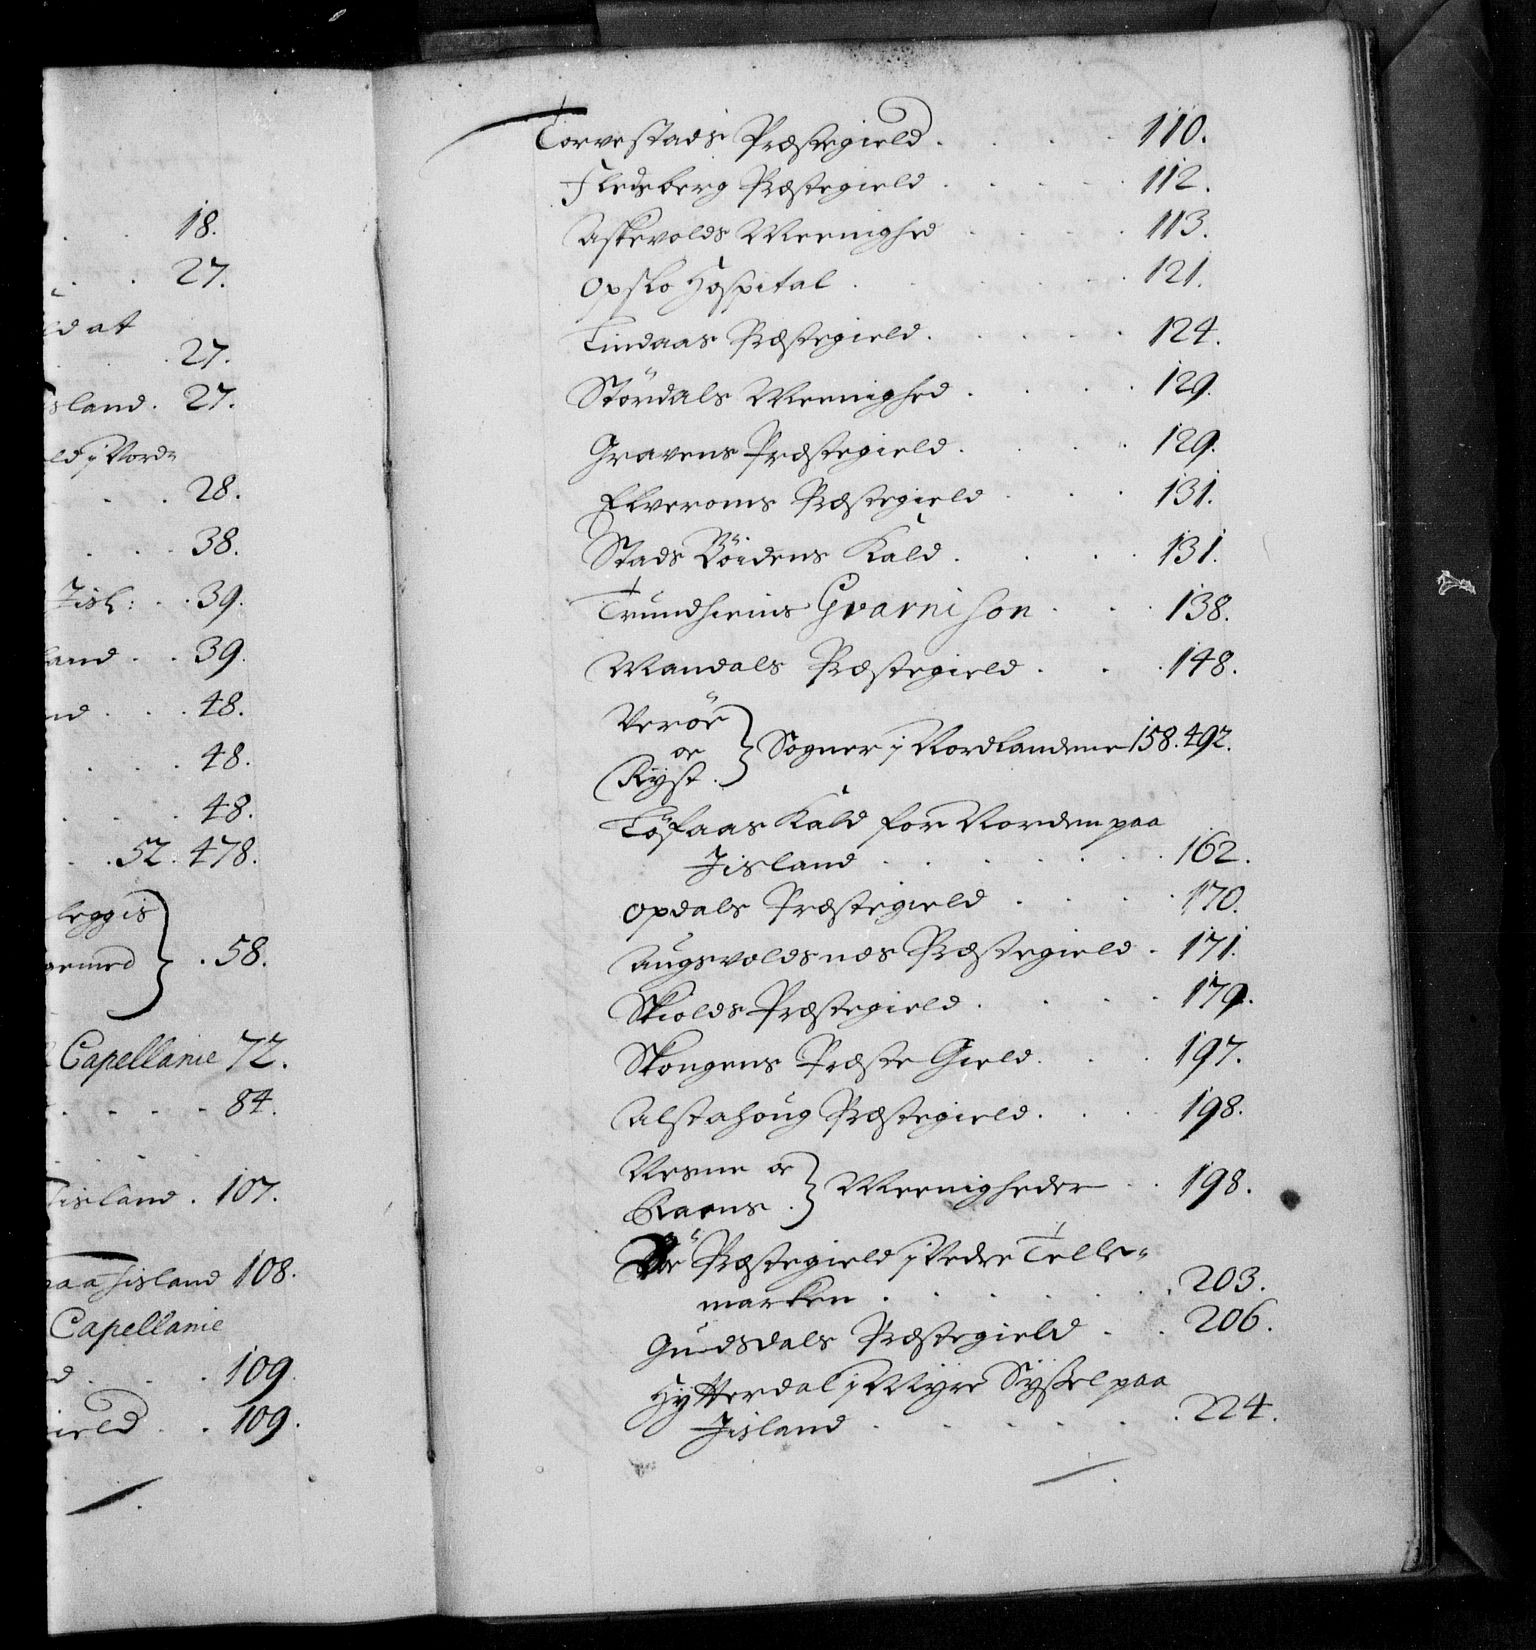 18.
27.
ld at
27.
island. 27.
ld j Nord-
28.
38.
Jisl: 39.
land 39.
nd 48.
48.
48.
52. 478.
leggis
58.
Capellanie 72.
84.
Jisland. 107.
paa Jisland 108.
Capellanie
d 109.
gield 109.
Torvestads Præstegield. 110.
Flesberg Præstegield 112.
Askevolds Meenighed 113.
Opslo Hospital 121.
Tindaas Præstegield. 124.
Stördals Meenighed 129.
Gravens Præstegield. 129.
Elveroms Præstegield 131.
Stads Böidens Kald. 131.
Trundhiems Gvarnison 138.
Mandals Præstegield 148.
Veröe
oc
Ryst. } Sogner j Nordlandene 158. 492.
Töfaas Kald for Norden paa
Jisland 162.
Opdals Præstegield 170.
Augsvoldsnæs Præstegield 171.
Skiolds Præstegield 179.
Skongens Præste Gield. 197.
Alstahoug Præstegield. 198.
Nesne oc
Raens } Meenigheder 198.
Böe Præstegield j Nedre Telle-
marken 203.
Gusdals Præstegield 206.
Hytterdal j Myre Syssel paa
Jisland 224.